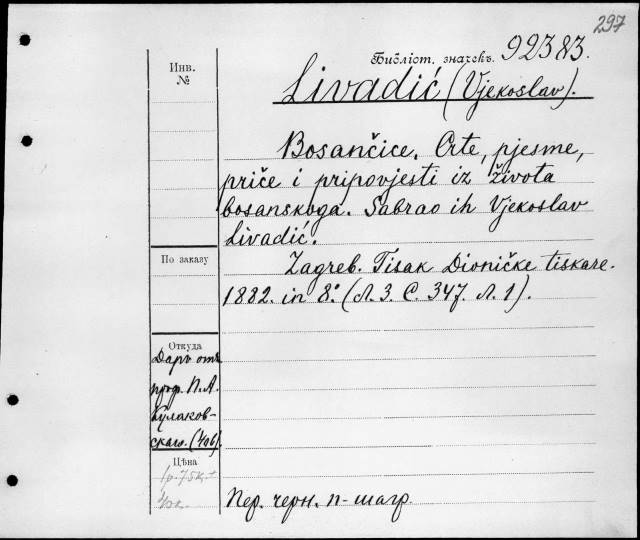 297
Библіот. значекъ. 92383.
Инв.
№
Livadić (Vjekoslav).
Bosančice. Crte, pjesme,
priče i pripovjesti iz života
bosanskoga. Sabrao ih Vjekoslav
Livadić.
По заказу
Zagreb. Tisak Dioničke tiskare.
1882. in 8º. (Л. 3. С. 347. Л. 1).
Откуда
Даръ отъ
проф. П. А.
Кулаков-
скаго. (406).
Цѣна
1р. 75к.
Пер. черн. п-шагр.